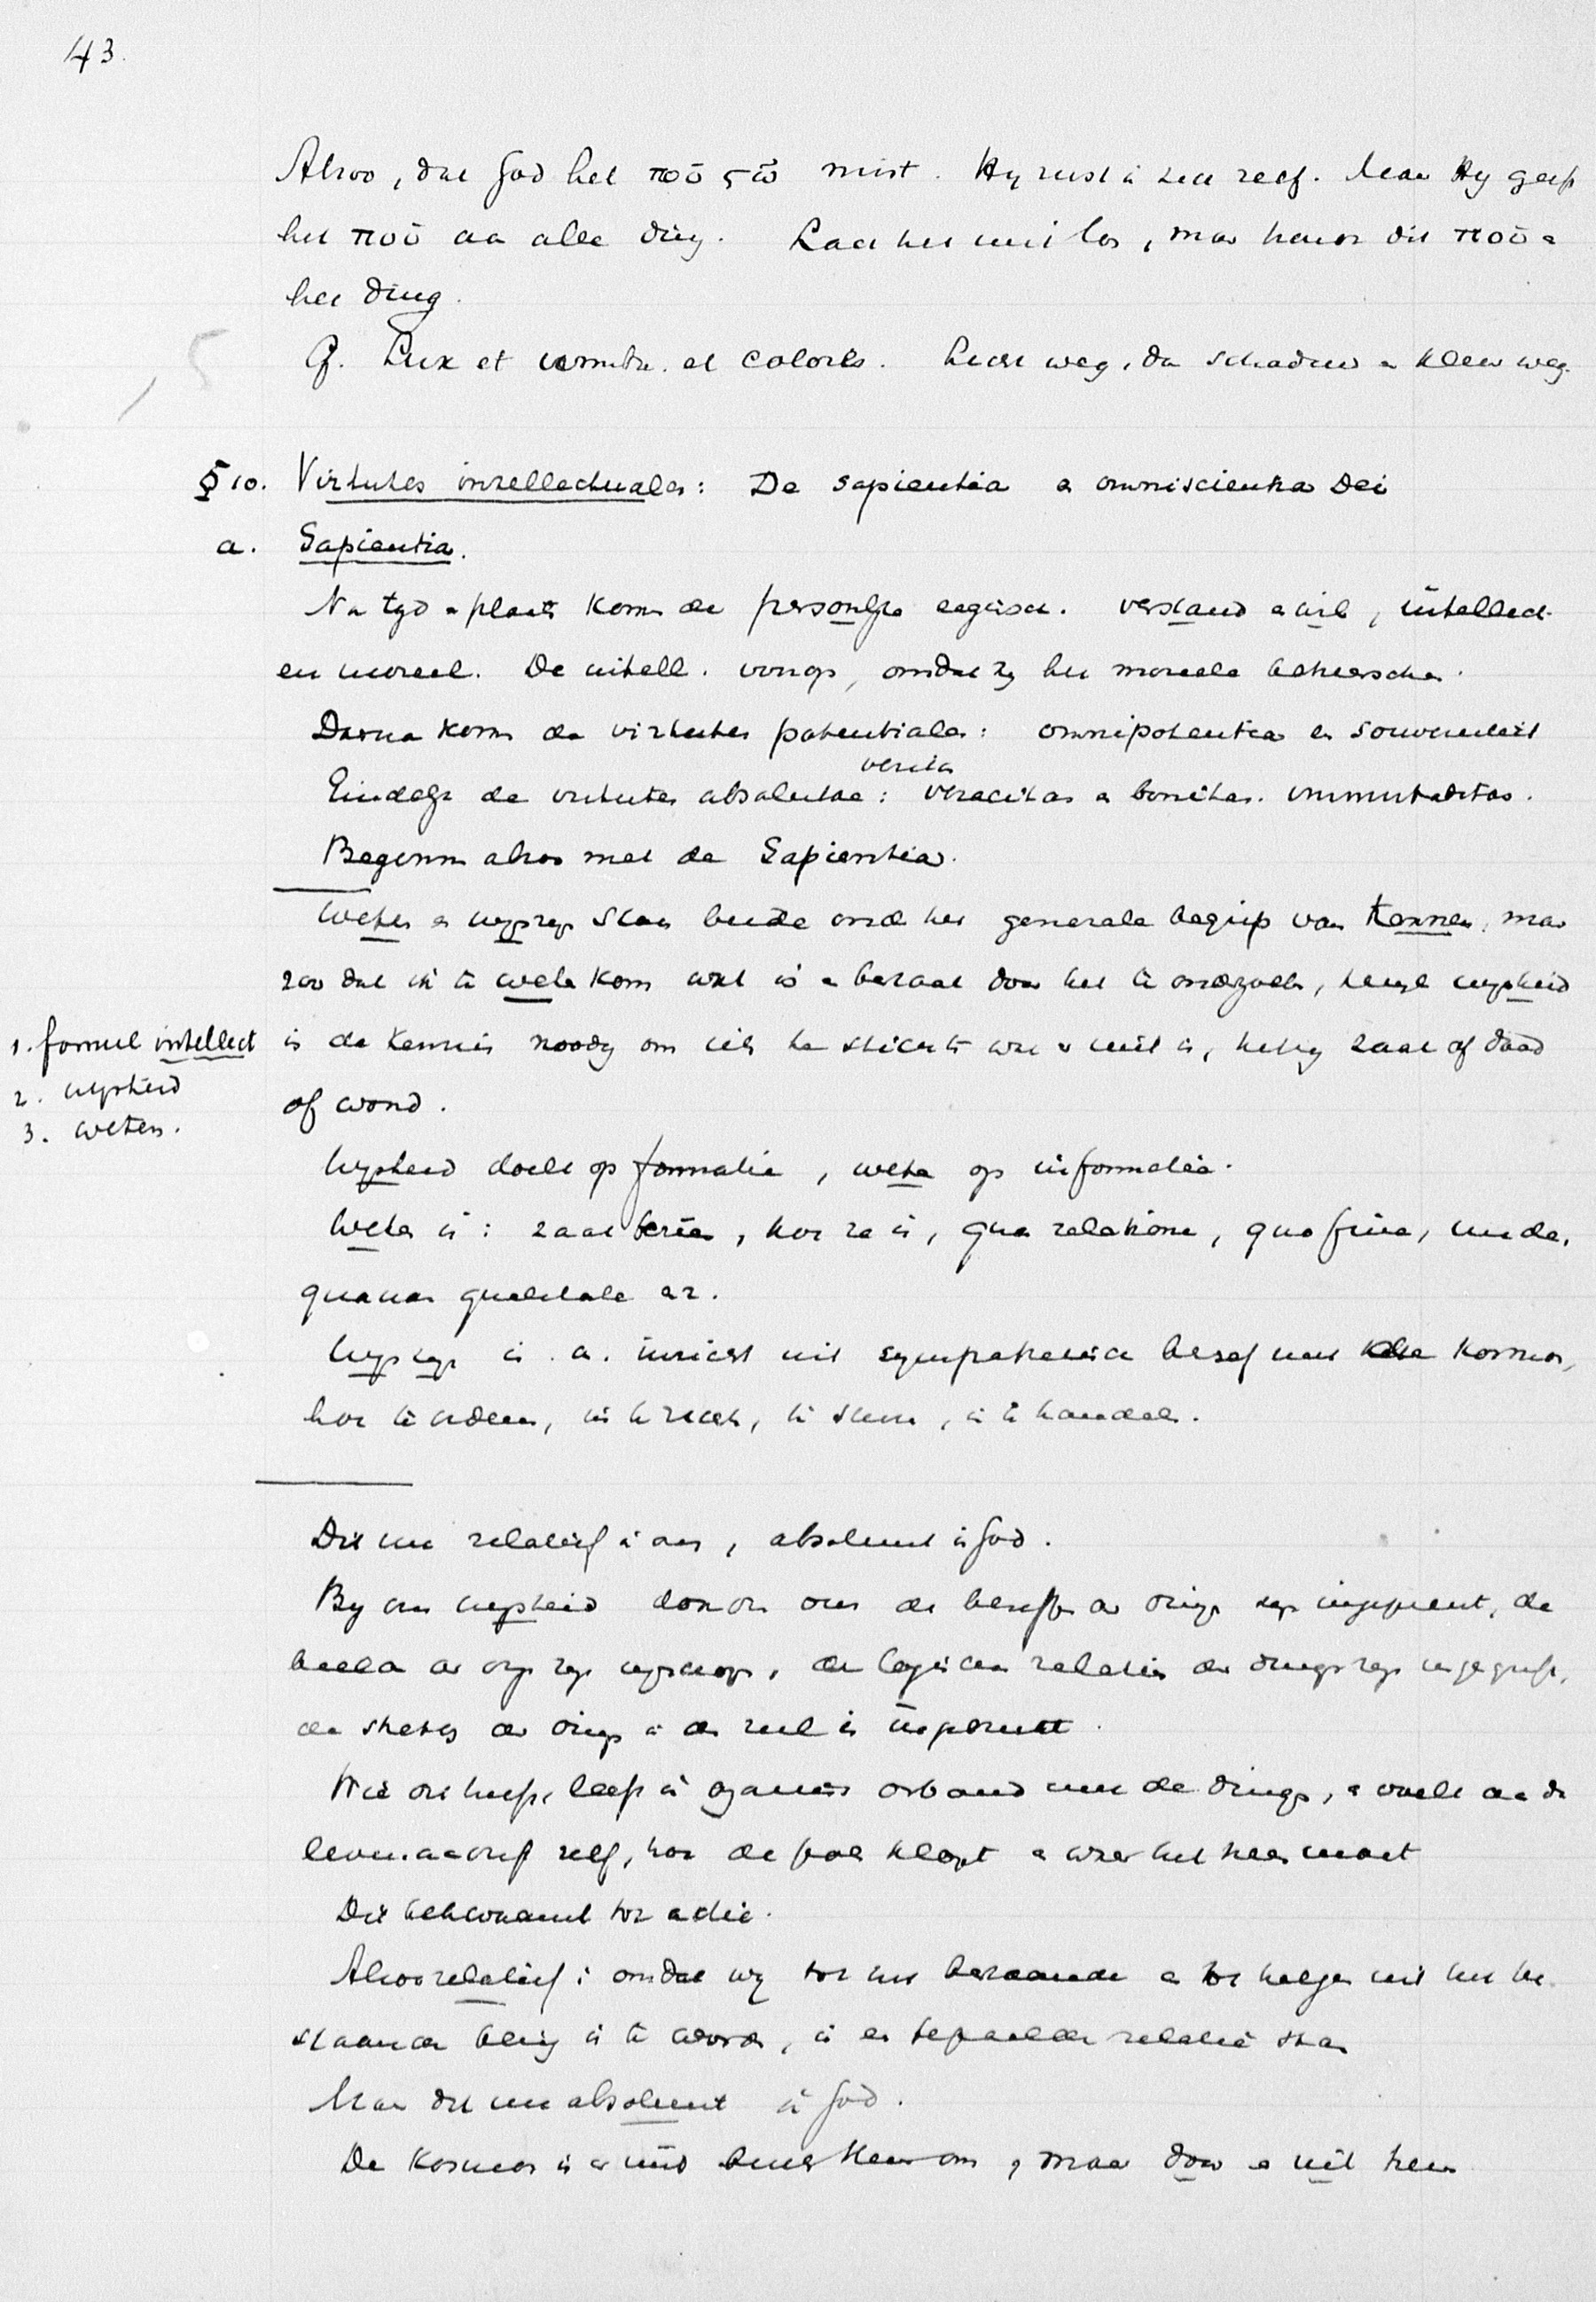 43.
Alzoo, dat God het ποῦ στῶ mist. Hy rust in zich zelf. Maar Hy geeft
het ποῦ aan alle ding. Laat het niet los, maar dit ποῦ a
het ding.
Cf. Lux et umbra et colores. Licht weg, dan schaduw en kleur weg.
§ 10. Virtutes intellectuales: De sapientia e omniscientia Dei
a. Sapientia.
Na tyd en plaats komen de persoonlyke eigensch. verstand en wil, intellect.
en moreel. De intell. voorop, omdat zy het moreele beheerschen.
Daarna komen de virtutes potentiales: omnipotentia en souvereiniteit
Eindelyk de virtutes absolutae: veritas veracitas e bonitas. immutabilitas.
Beginnen alzoo met de Sapientia.
Weten en wysheid staan beide onder het generale begrip van kennen, maar
zoo dat in te weten komen wat is en bestaat door het te onderzoeken, terwyl wysheid
1. formeel intellect
2. wysheid
3. weten.
is de kennis noodig om iets te stichten wat er niet is, hetzy zaak of daad
of woord.
Wysheid doelt op formatie, weten op informatie.
Weten is: zaak kennen, hoe ze is, qua relatione, quo fine, unde,
quanam qualitate etz.
Wysheid is a. inzicht uit sympathetisch besef met de kosmos,
hoe te ordenen, in te richten, te sturen, in te handelen.
Dit nu relatief in ons, absoluut in God.
By ons wysheid doordien ons de beseffen der dingen zyn ingeprent, de
beelden der dingen zyn , de logische relatien der dingen zyn ingegrift,
de schets der dingen in de ziel is ingeprent.
Wie dit heeft, leeft in organisch verband met de dingen, en voelt aan de
levensader zelf, hoe de pols klopt en waar het heen moet
Dit bekwaamt tot actie.
Alzoo relatief: omdat wy tot het bestaande en tot hetgeen uit het be-
staande bezig is te worden, in een bepaalde relatie staan
Maar dit nu absoluut in God.
De kosmos is er niet buiten Hem om, maar door en uit hem